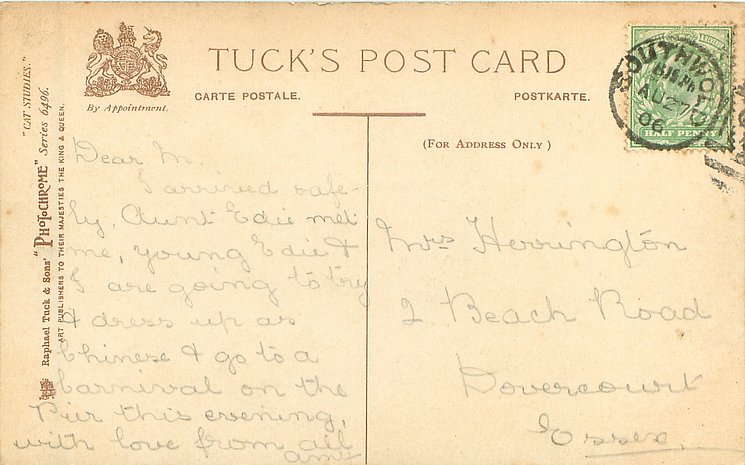 TUCK'S POST CARD
By Appointment.
CARTE POSTALE.
POSTKARTE.
(FOR ADDRESS ONLY)
"CAT STUDIES."
Raphael Tuck & Sons' "PHOTOCHROME" Series 6496.
ART PUBLISHERS TO THEIR MAJESTIES THE KING & QUEEN.
Dear M.
I arrived safe-
ly, Aunt Edie met
me, young Edie &
I are going to try
& dress up as
Chinese & go to a
Carnival on the
Pier this evening,
with love from all
Mrs Herrington
2 Beach Road
Dovercourt
Essex
SOUTHWO
AU 27
06
HALF PENNY